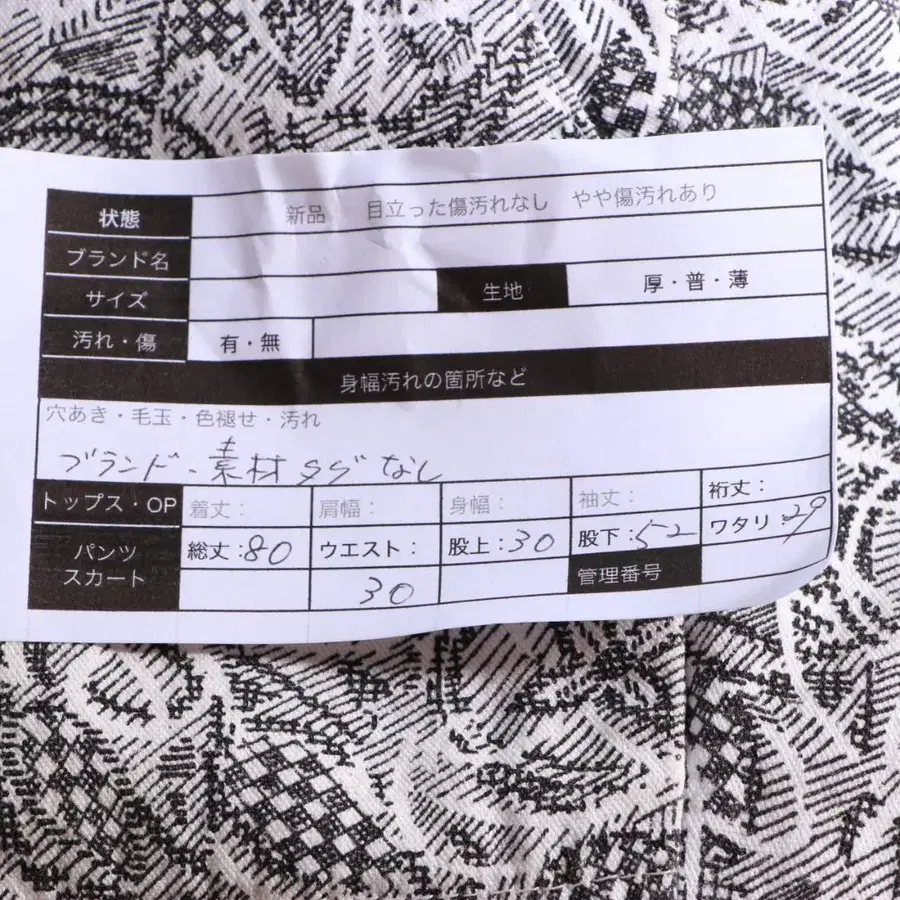 状態 新品 目立った傷汚れなし やや傷汚れあり
ブランド名
サイズ 生地 厚・普・薄
汚れ・傷 有・無
身幅汚れの箇所など
穴あき・毛玉・色褪せ・汚れ
ブランド、素材タグなし
トップス・OP 着丈: 肩幅: 身幅: 袖丈: 裄丈:
パンツ 総丈:80 ウエスト: 股上:30 股下:52 ワタリ:29
スカート 30 管理番号